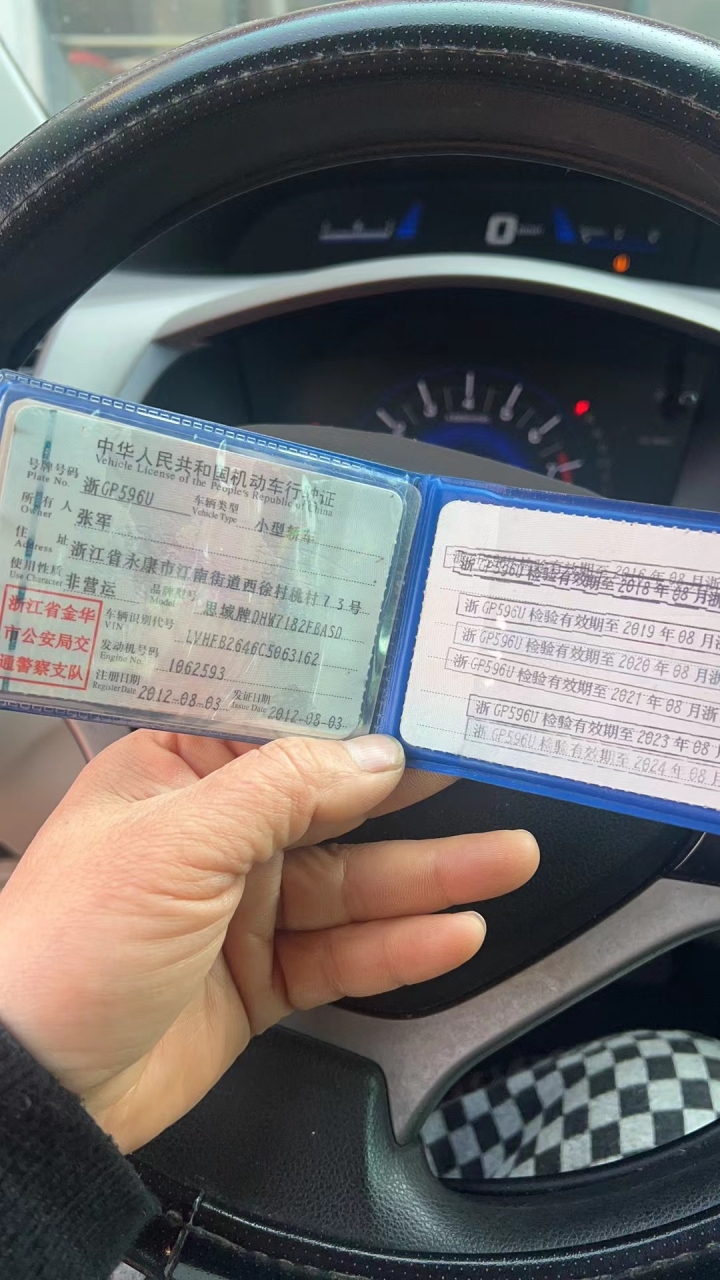 中华人民共和国机动车行驶证
Vehicle License of the People's Republic of China
号牌号码 Plate No. 浙GP596U 车辆类型 Vehicle Type 小型轿车
所有人 Owner 张军
住址 Address 浙江省永康市江南街道西徐村桃村73号
使用性质 Use Character 非营运 品牌型号 Model 思域牌DHW7182FBASD
浙江省金华
市公安局交
通警察支队
车辆识别代号 VIN LVHFB2646C5063162
发动机号码 Engine No. 1062593
注册日期 Register Date 2012-08-03 发证日期 Issue Date 2012-08-03
浙GP596U检验有效期至2018年08月浙
浙GP596U检验有效期至2019年08月
浙GP596U检验有效期至2020年08月浙
浙GP596U检验有效期至2021年08月浙
浙GP596U检验有效期至2023年08月
浙GP596U检验有效期至2024年08月
0